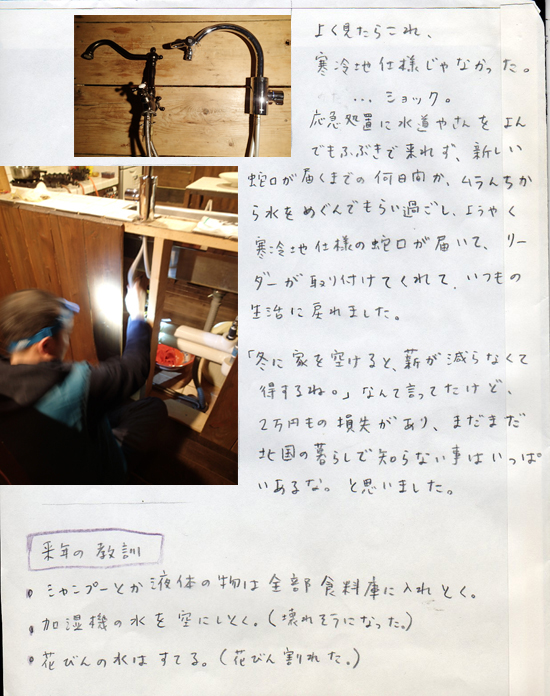 よく見たらこれ、
寒冷地仕様じゃなかった。
…ショック。
応急処置に水道やさんをよん
でもふぶきで来れず、新しい
蛇口が届くまでの何日間か、ムラんちか
ら水をめぐんでもらい過ごし、ようやく
寒冷地仕様の蛇口が届いて、リー
ダーが取り付けてくれて、いつもの
生活に戻れました。
「冬に家を空けると、薪が減らなくて
得するね。」なんて言ってたけど、
2万円もの損失があり、まだまだ
北国の暮らしで知らない事はいっぱ
いあるな。と思いました。
来年の教訓
• シャンプーとか液体の物は全部食料庫に入れとく。
• 加湿機の水を空にしとく。(壊れそうになった。)
• 花びんの水はすてる。(花びん割れた。)